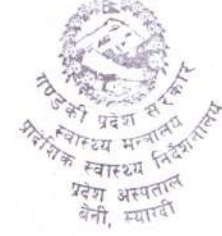 गण्डकी प्रदेश सरकार
स्वास्थ्य मन्त्रालय
प्रादेशिक स्वास्थ्य निर्देशनालय
प्रदेश अस्पताल
बेनी, म्याग्दी